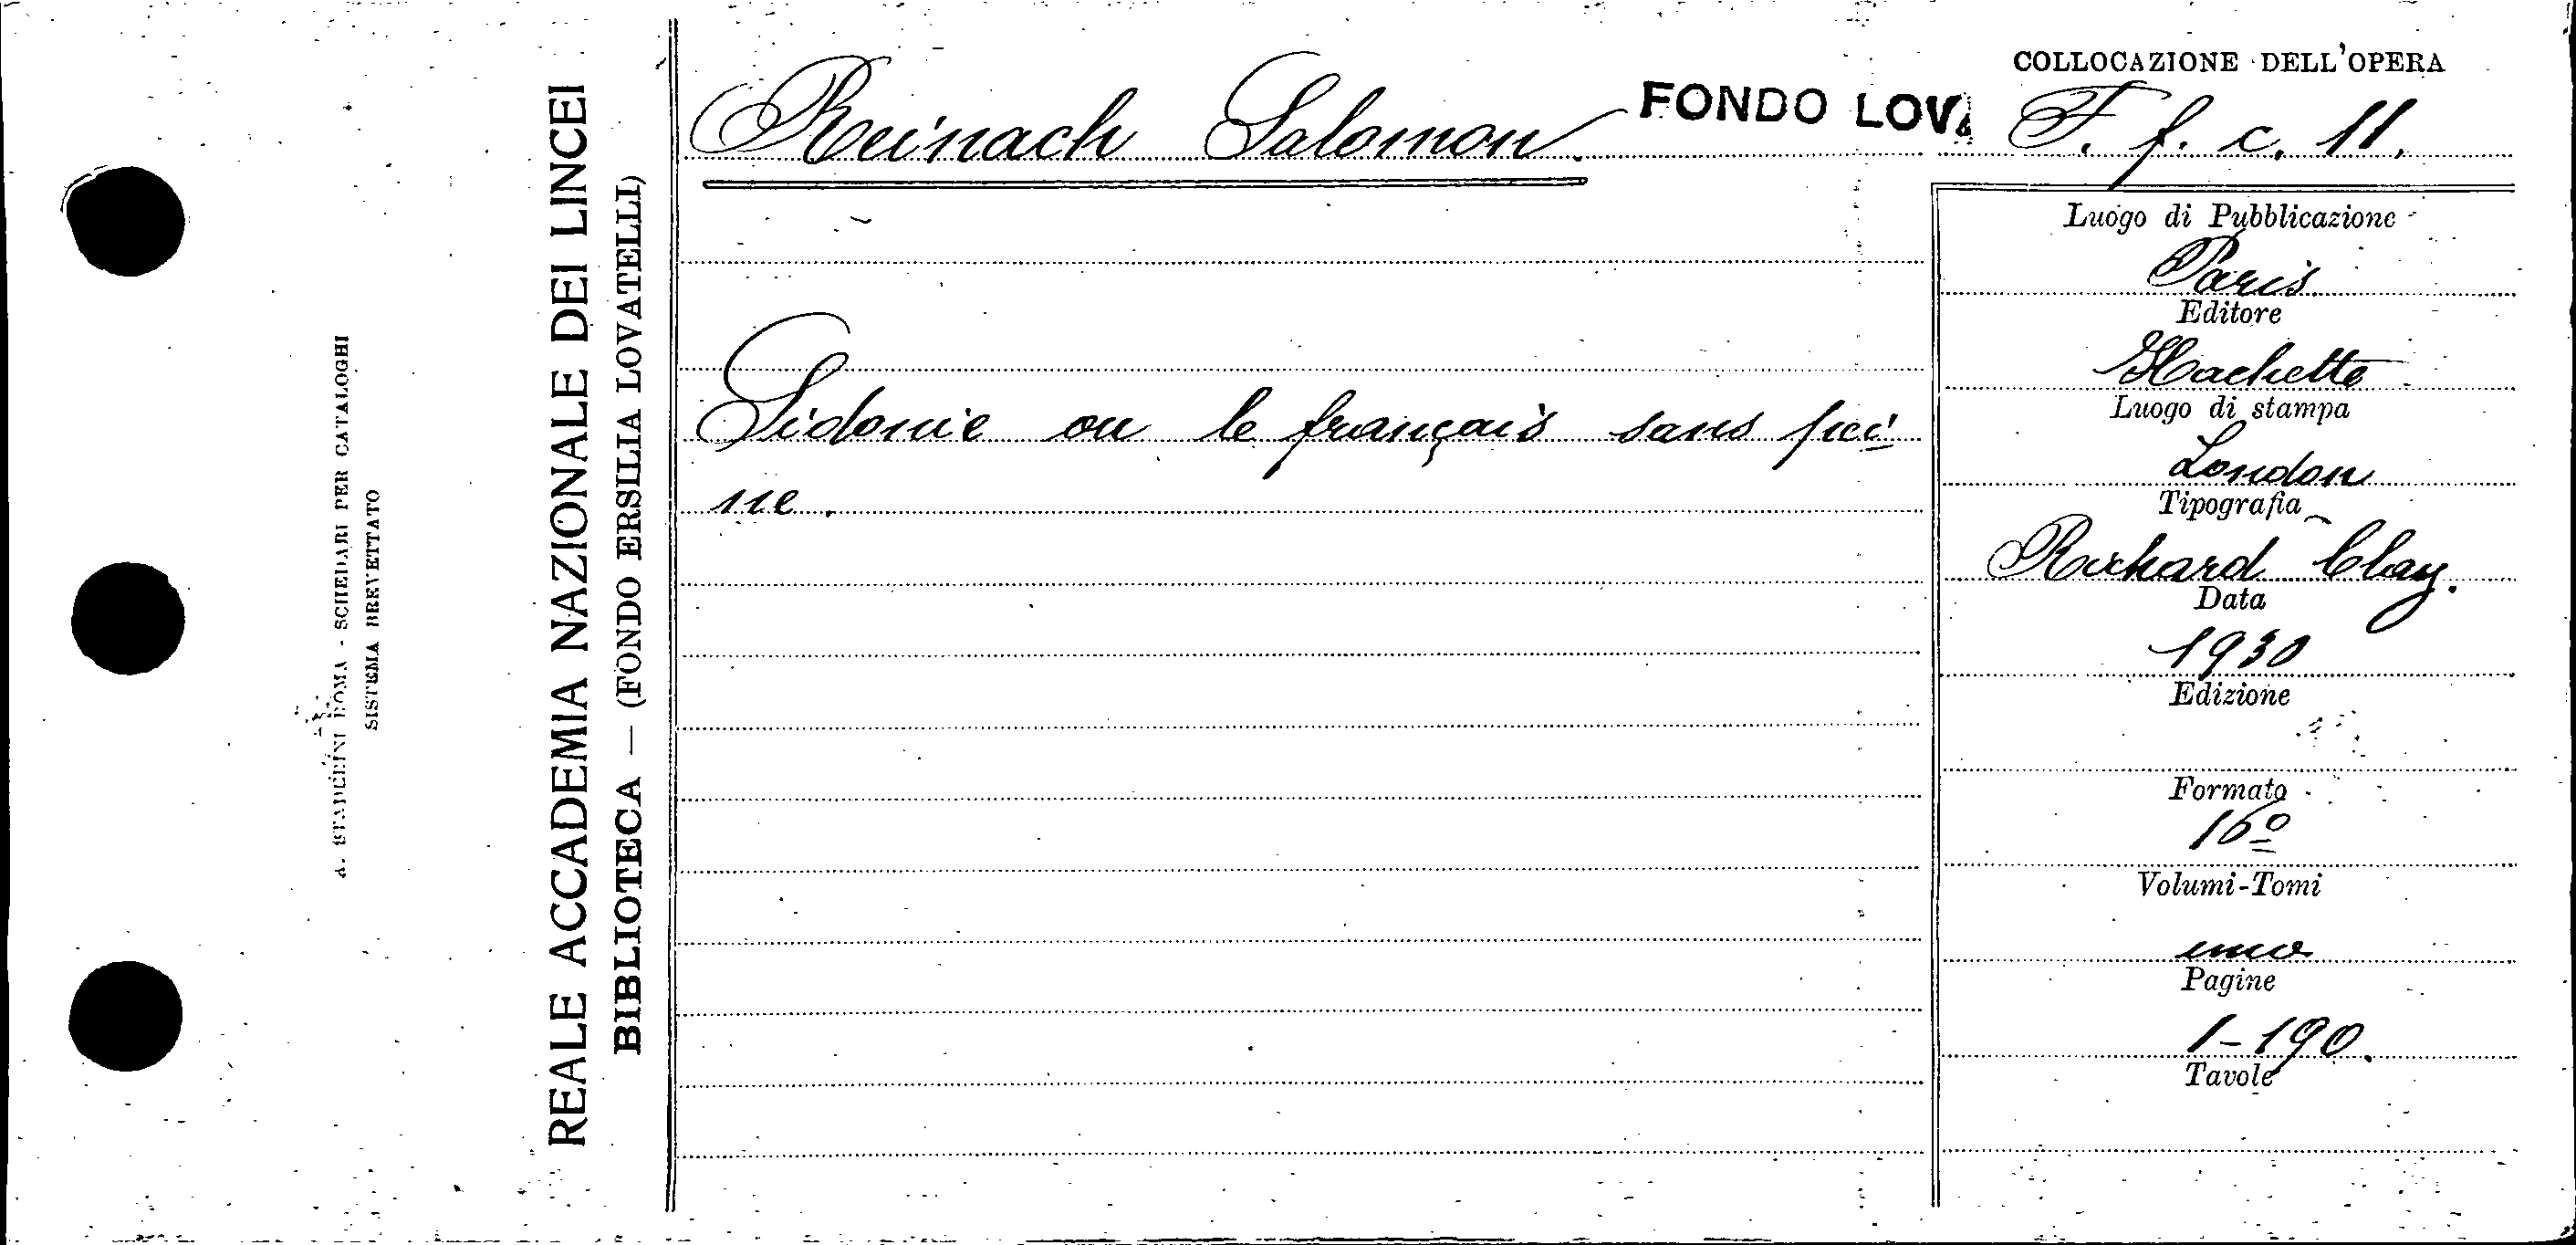 A. STADERINI ROMA - SCHEDARI PER CATALOGHI
SISTEMA BREVETTATO
REALE ACCADEMIA NAZIONALE DEI LINCEI
BIBLIOTECA — (FONDO ERSILIA LOVATELLI)
Reinach Salomon.
FONDO LOVA
Sidonie ou le français sans pei
ne.
COLLOCAZIONE DELL'OPERA
F. f. c. 11.
Luogo di Pubblicazione
Paris
Editore
Hachette
Luogo di stampa
London
Tipografia
Richard Clay.
Data
1930
Edizione
Formato
16º
Volumi-Tomi
uno
Pagine
1-190.
Tavole